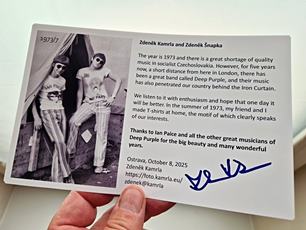 1973/7
Zdeněk Kamrla and Zdeněk Šnapka
The year is 1973 and there is a great shortage of quality
music in socialist Czechoslovakia. However, for five years
now, a short distance from here in London, there has
been a great band called Deep Purple, and their music
has also penetrated our country behind the Iron Curtain.
We listen to it with enthusiasm and hope that one day it
will be better. In the summer of 1973, my friend and I
made T-shirts at home, the motif of which clearly speaks
of our interests.
Thanks to Ian Paice and all the other great musicians of
Deep Purple for the big beauty and many wonderful
years.
Ostrava, October 8, 2025
Zdeněk Kamrla
https://foto.kamrla.eu/
zdenek@kamrla